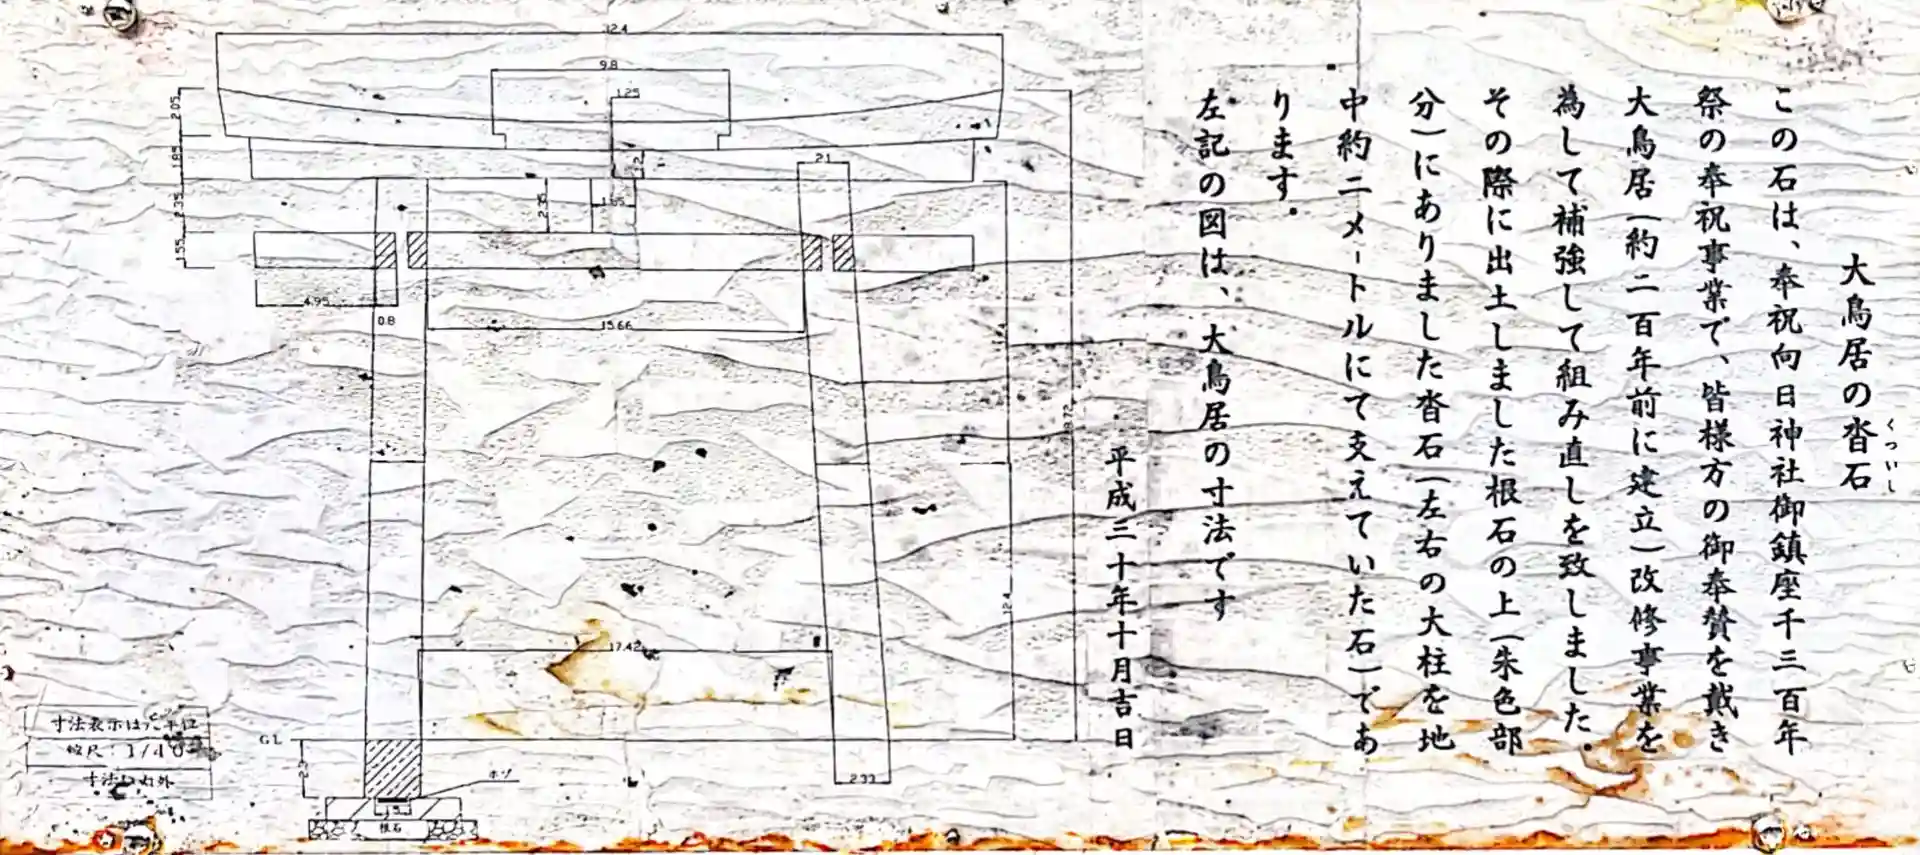 大鳥居の沓石
くついし
この石は、奉祝向日神社御鎮座千三百年
祭の奉祝事業で、皆様方の御奉賛を戴き
大鳥居(約二百年前に建立)改修事業を
為して補強して組み直しを致しました。
その際に出土しました根石の上(朱色部
分)にありました沓石(左右の大柱を地
中約二メートルにて支えていた石)であ
ります。
左記の図は、大鳥居の寸法です
平成三十年十月吉日
12.4
9.8
1.25
2.05
1.85
2.35
1.55
2.1
2.35
1.65
4.95
0.8
15.66
12.4
17.42
GL
2.33
ホゾ
根石
寸法表示は尺単位
縮尺:1/40